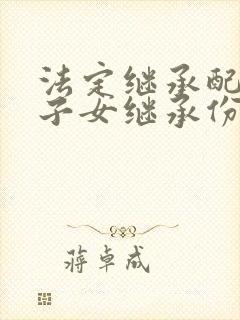 法定继承配
子女继承份
蒋卓成